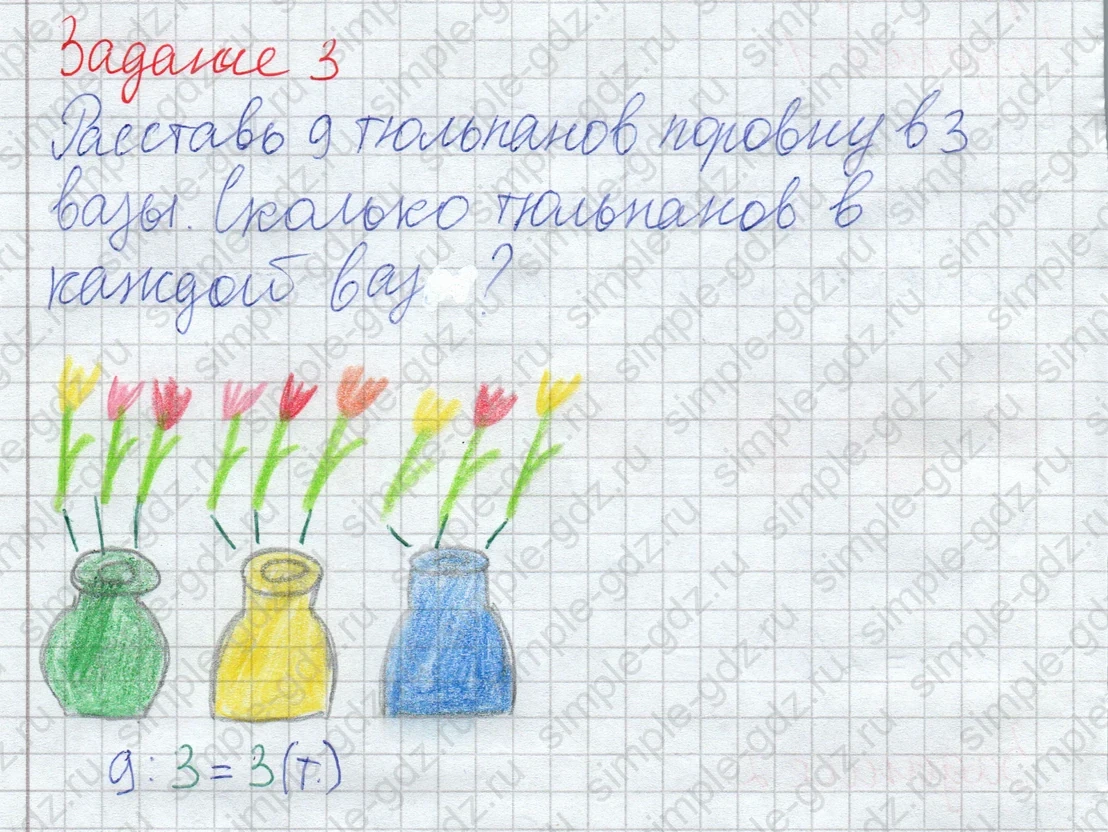 Задание 3
Расставь 9 тюльпанов поровну в 3
вазы. Сколько тюльпанов в
каждой ваз ?
9 : 3 = 3 (т.)
simple-gdz.ru